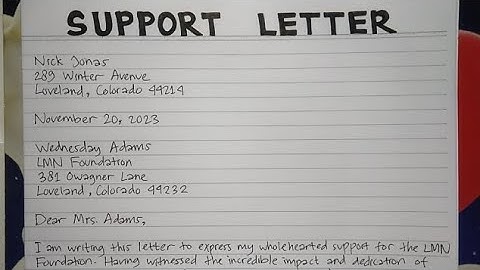 SUPPORT LETTER
Nick Jonas
289 Winter Avenue
Loveland, Colorado 44214
November 20, 2023
Wednesday Adams
LMN Foundation
381 Owagner Lane
Loveland, Colorado 44232
Dear Mrs. Adams,
I am writing this letter to express my wholehearted support for the LMN
Foundation. Having witnessed the incredible impact and dedication of